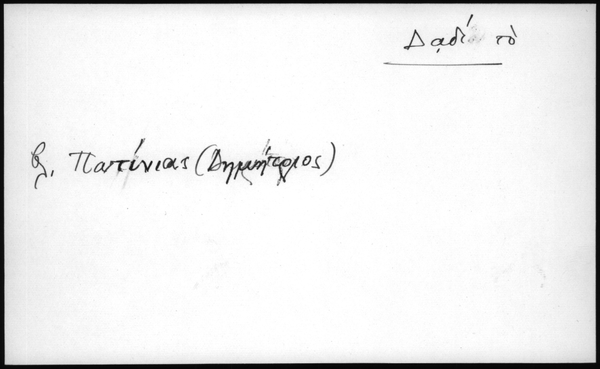 Δαδί τὸ
βλ. Πατίνιας (Δημήτριος)